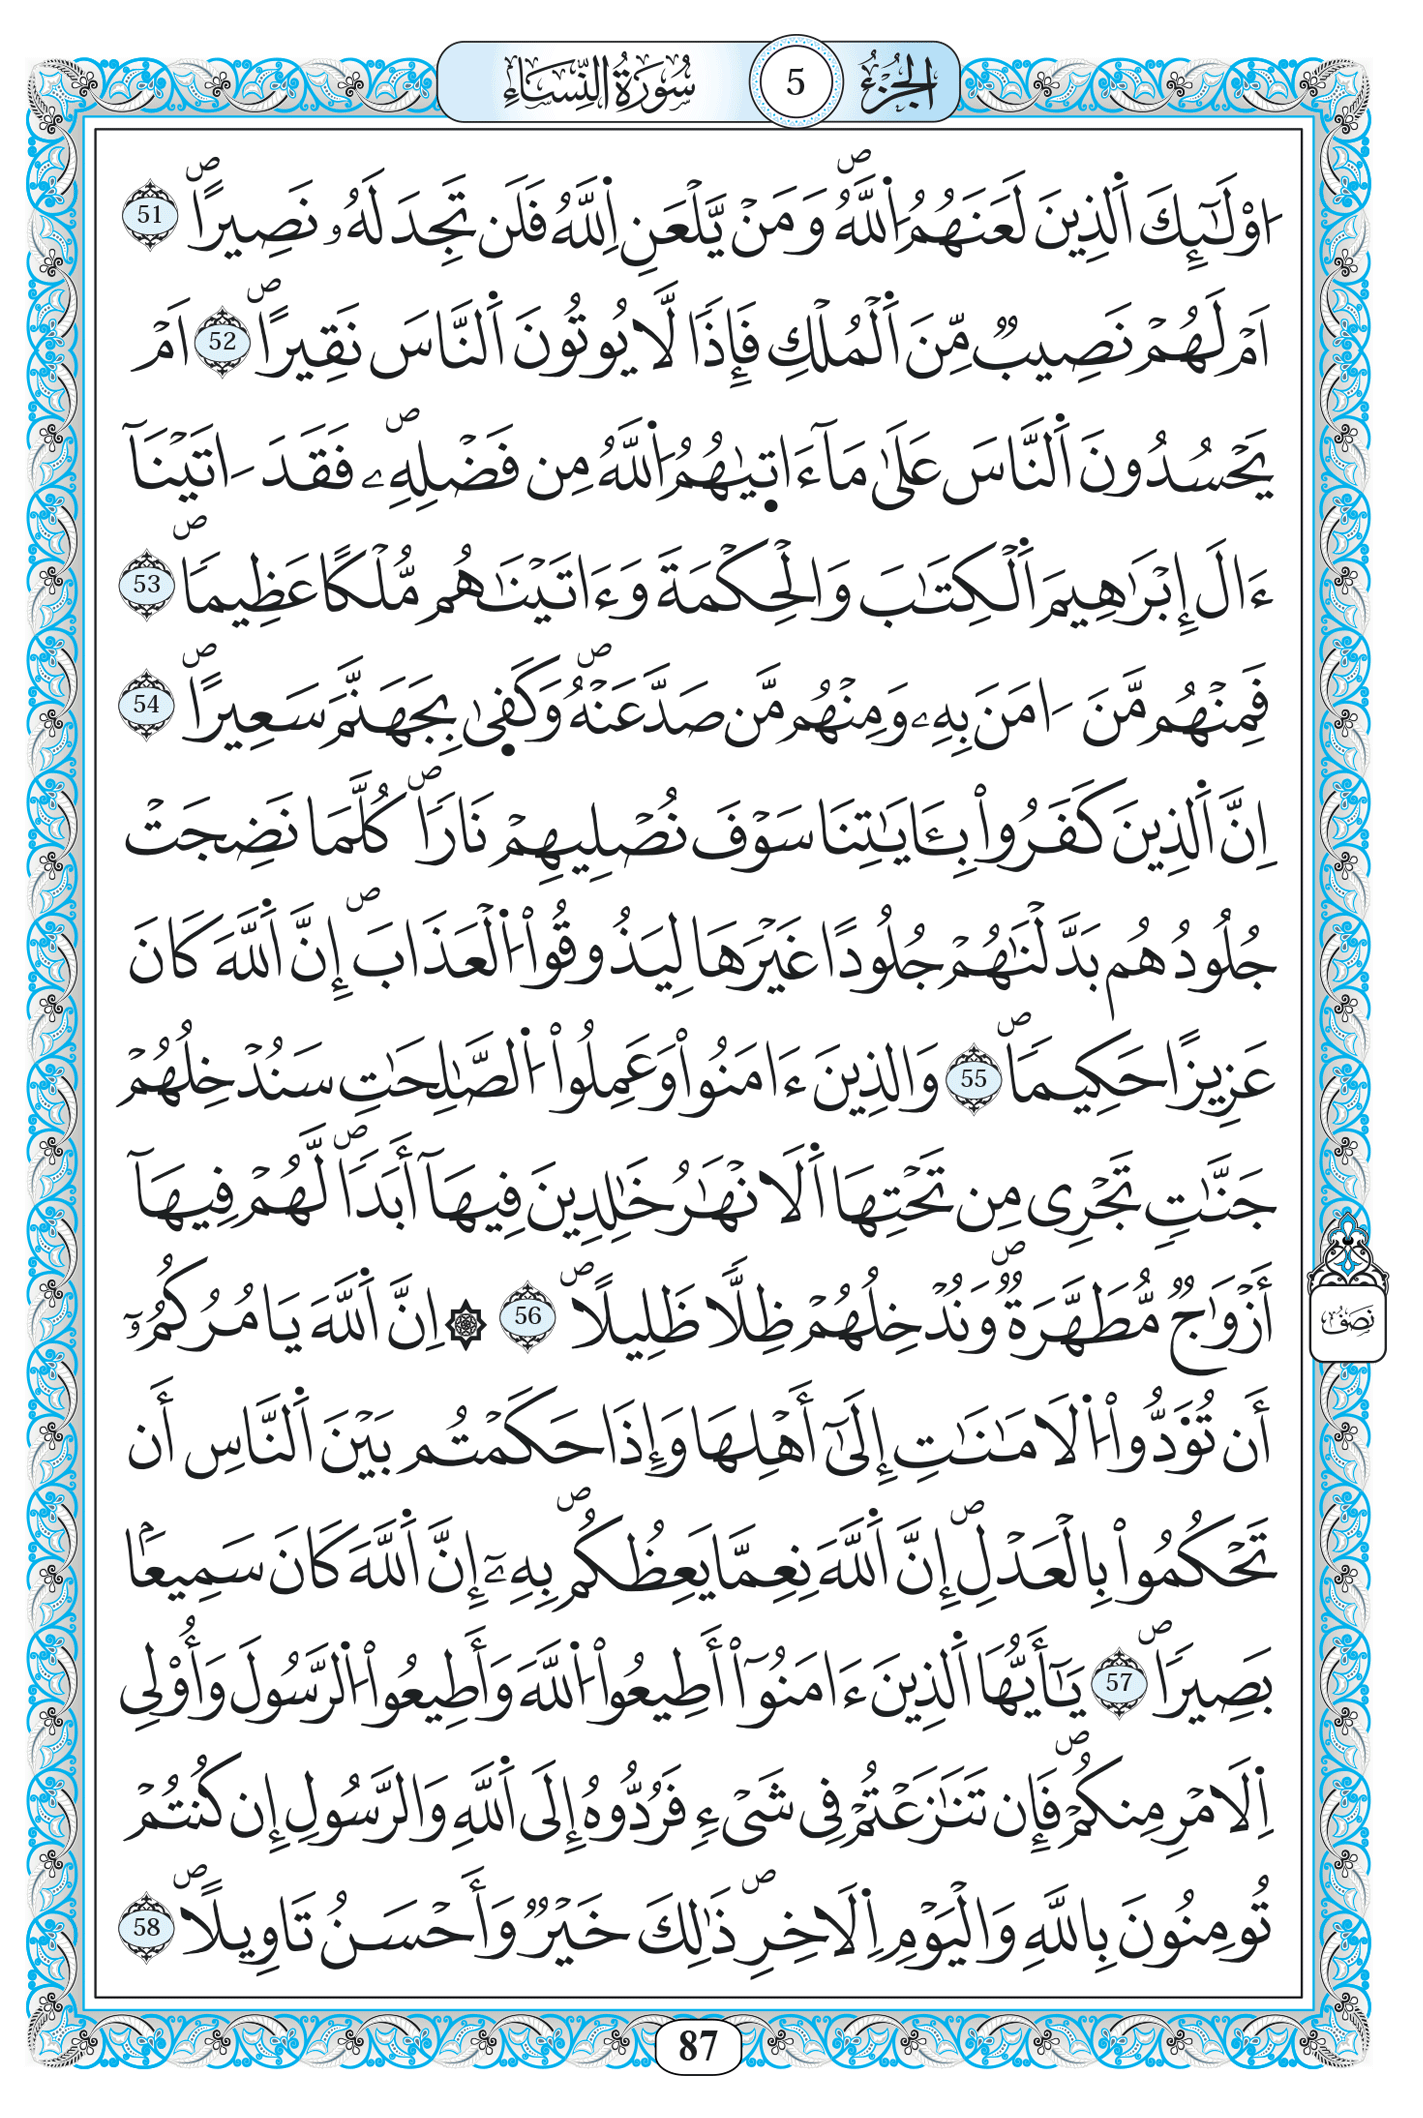 الجُزْءُ 5 سُورَةُ النِّسَاءِ
اُوْلَٰٓئِكَ اَ۬لذِينَ لَعَنَهُمُ اُ۬للَّهُۖ وَمَنْ يَّلْعَنِ اِ۬للَّهُ فَلَن تَجِدَ لَهُۥ نَصِيراًۖ 51
اَمْ لَهُمْ نَصِيبٞ مِّنَ اَ۬لْمُلْكِ فَإِذاٗ لَّا يُوتُونَ اَ۬لنَّاسَ نَقِيراًۖ 52 اَمْ
يَحْسُدُونَ اَ۬لنَّاسَ عَلَىٰ مَآ ءَاتٜىٰهُمُ اُ۬للَّهُ مِن فَضْلِهِۦۖ فَقَدَ اٰتَيْنَآ
ءَالَ إِبْرَٰهِيمَ اَ۬لْكِتَٰبَ وَالْحِكْمَةَ وَءَاتَيْنَٰهُم مُّلْكاً عَظِيماٗۖ 53
فَمِنْهُم مَّنَ اٰمَنَ بِهِۦ وَمِنْهُم مَّن صَدَّ عَنْهُۖ وَكَفٜىٰ بِجَهَنَّمَ سَعِيراًۖ 54
اِنَّ اَ۬لذِينَ كَفَرُواْ بِـَٔايَٰتِنَا سَوْفَ نُصْلِيهِمْ نَاراٗۖ كُلَّمَا نَضِجَتْ
جُلُودُهُم بَدَّلْنَٰهُمْ جُلُوداً غَيْرَهَا لِيَذُوقُواْ اُ۬لْعَذَابَۖ إِنَّ اَ۬للَّهَ كَانَ
عَزِيزاً حَكِيماٗۖ 55 وَالذِينَ ءَامَنُواْ وَعَمِلُواْ اُ۬لصَّٰلِحَٰتِ سَنُدْخِلُهُمْ
جَنَّٰتٖ تَجْرِى مِن تَحْتِهَا اَ۬لَانْهَٰرُ خَٰلِدِينَ فِيهَآ أَبَداٗۖ لَّهُمْ فِيهَآ
أَزْوَٰجٞ مُّطَهَّرَةٞۖ وَنُدْخِلُهُمْ ظِلّاٗ ظَلِيلاًۖ 56 ۞ اِنَّ اَ۬للَّهَ يَامُرُكُمُۥٓ
أَن تُؤَدُّواْ اُ۬لَامَٰنَٰتِ إِلَىٰٓ أَهْلِهَا وَإِذَا حَكَمْتُم بَيْنَ اَ۬لنَّاسِ أَن
تَحْكُمُواْ بِالْعَدْلِۖ إِنَّ اَ۬للَّهَ نِعِمَّا يَعِظُكُمۖ بِهِۦٓ إِنَّ اَ۬للَّهَ كَانَ سَمِيعاَۢ
بَصِيراٗۖ 57 يَٰٓأَيُّهَا اَ۬لذِينَ ءَامَنُوٓاْ أَطِيعُواْ اُ۬للَّهَ وَأَطِيعُواْ اُ۬لرَّسُولَ وَأُوْلِى
اِ۬لَامْرِ مِنكُمْۖ فَإِن تَنَٰزَعْتُمْ فِى شَىْءٖ فَرُدُّوهُ إِلَى اَ۬للَّهِ وَالرَّسُولِ إِن كُنتُمْ
تُومِنُونَ بِاللَّهِ وَالْيَوْمِ اِ۬لَاخِرِۖ ذَٰلِكَ خَيْرٞ وَأَحْسَنُ تَاوِيلاًۖ 58
نِصْفُ
87